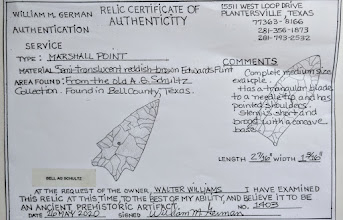 WILLIAM M. GERMAN
AUTHENTICATION
SERVICE
RELIC CERTIFICATE OF
AUTHENTICITY
15511 WEST LOOP DRIVE
PLANTERSVILLE, TEXAS
77363-8166
281-356-1873
281-793-2532
TYPE: MARSHALL POINT
MATERIAL: Semi-translucent reddish-brown Edwards Flint
AREA FOUND: From the old A.G. Schultz
Collection. Found in Bell County, Texas.
COMMENTS
Complete medium size
example.
Has a triangular blade
to a needle tip and has
pointed shoulders.
Stem is short and
broad with a concave
base.
BELL AG SCHULTZ
LENGTH WIDTH
AT THE REQUEST OF THE OWNER, WALTER WILLIAMS, I HAVE EXAMINED
THIS RELIC AT THIS TIME, TO THE BEST OF MY ABILITY, AND BELIEVE IT TO BE
AN ANCIENT PREHISTORIC ARTIFACT.
No. 1403
DATE 26 MAY 2020 SIGNED William M. German